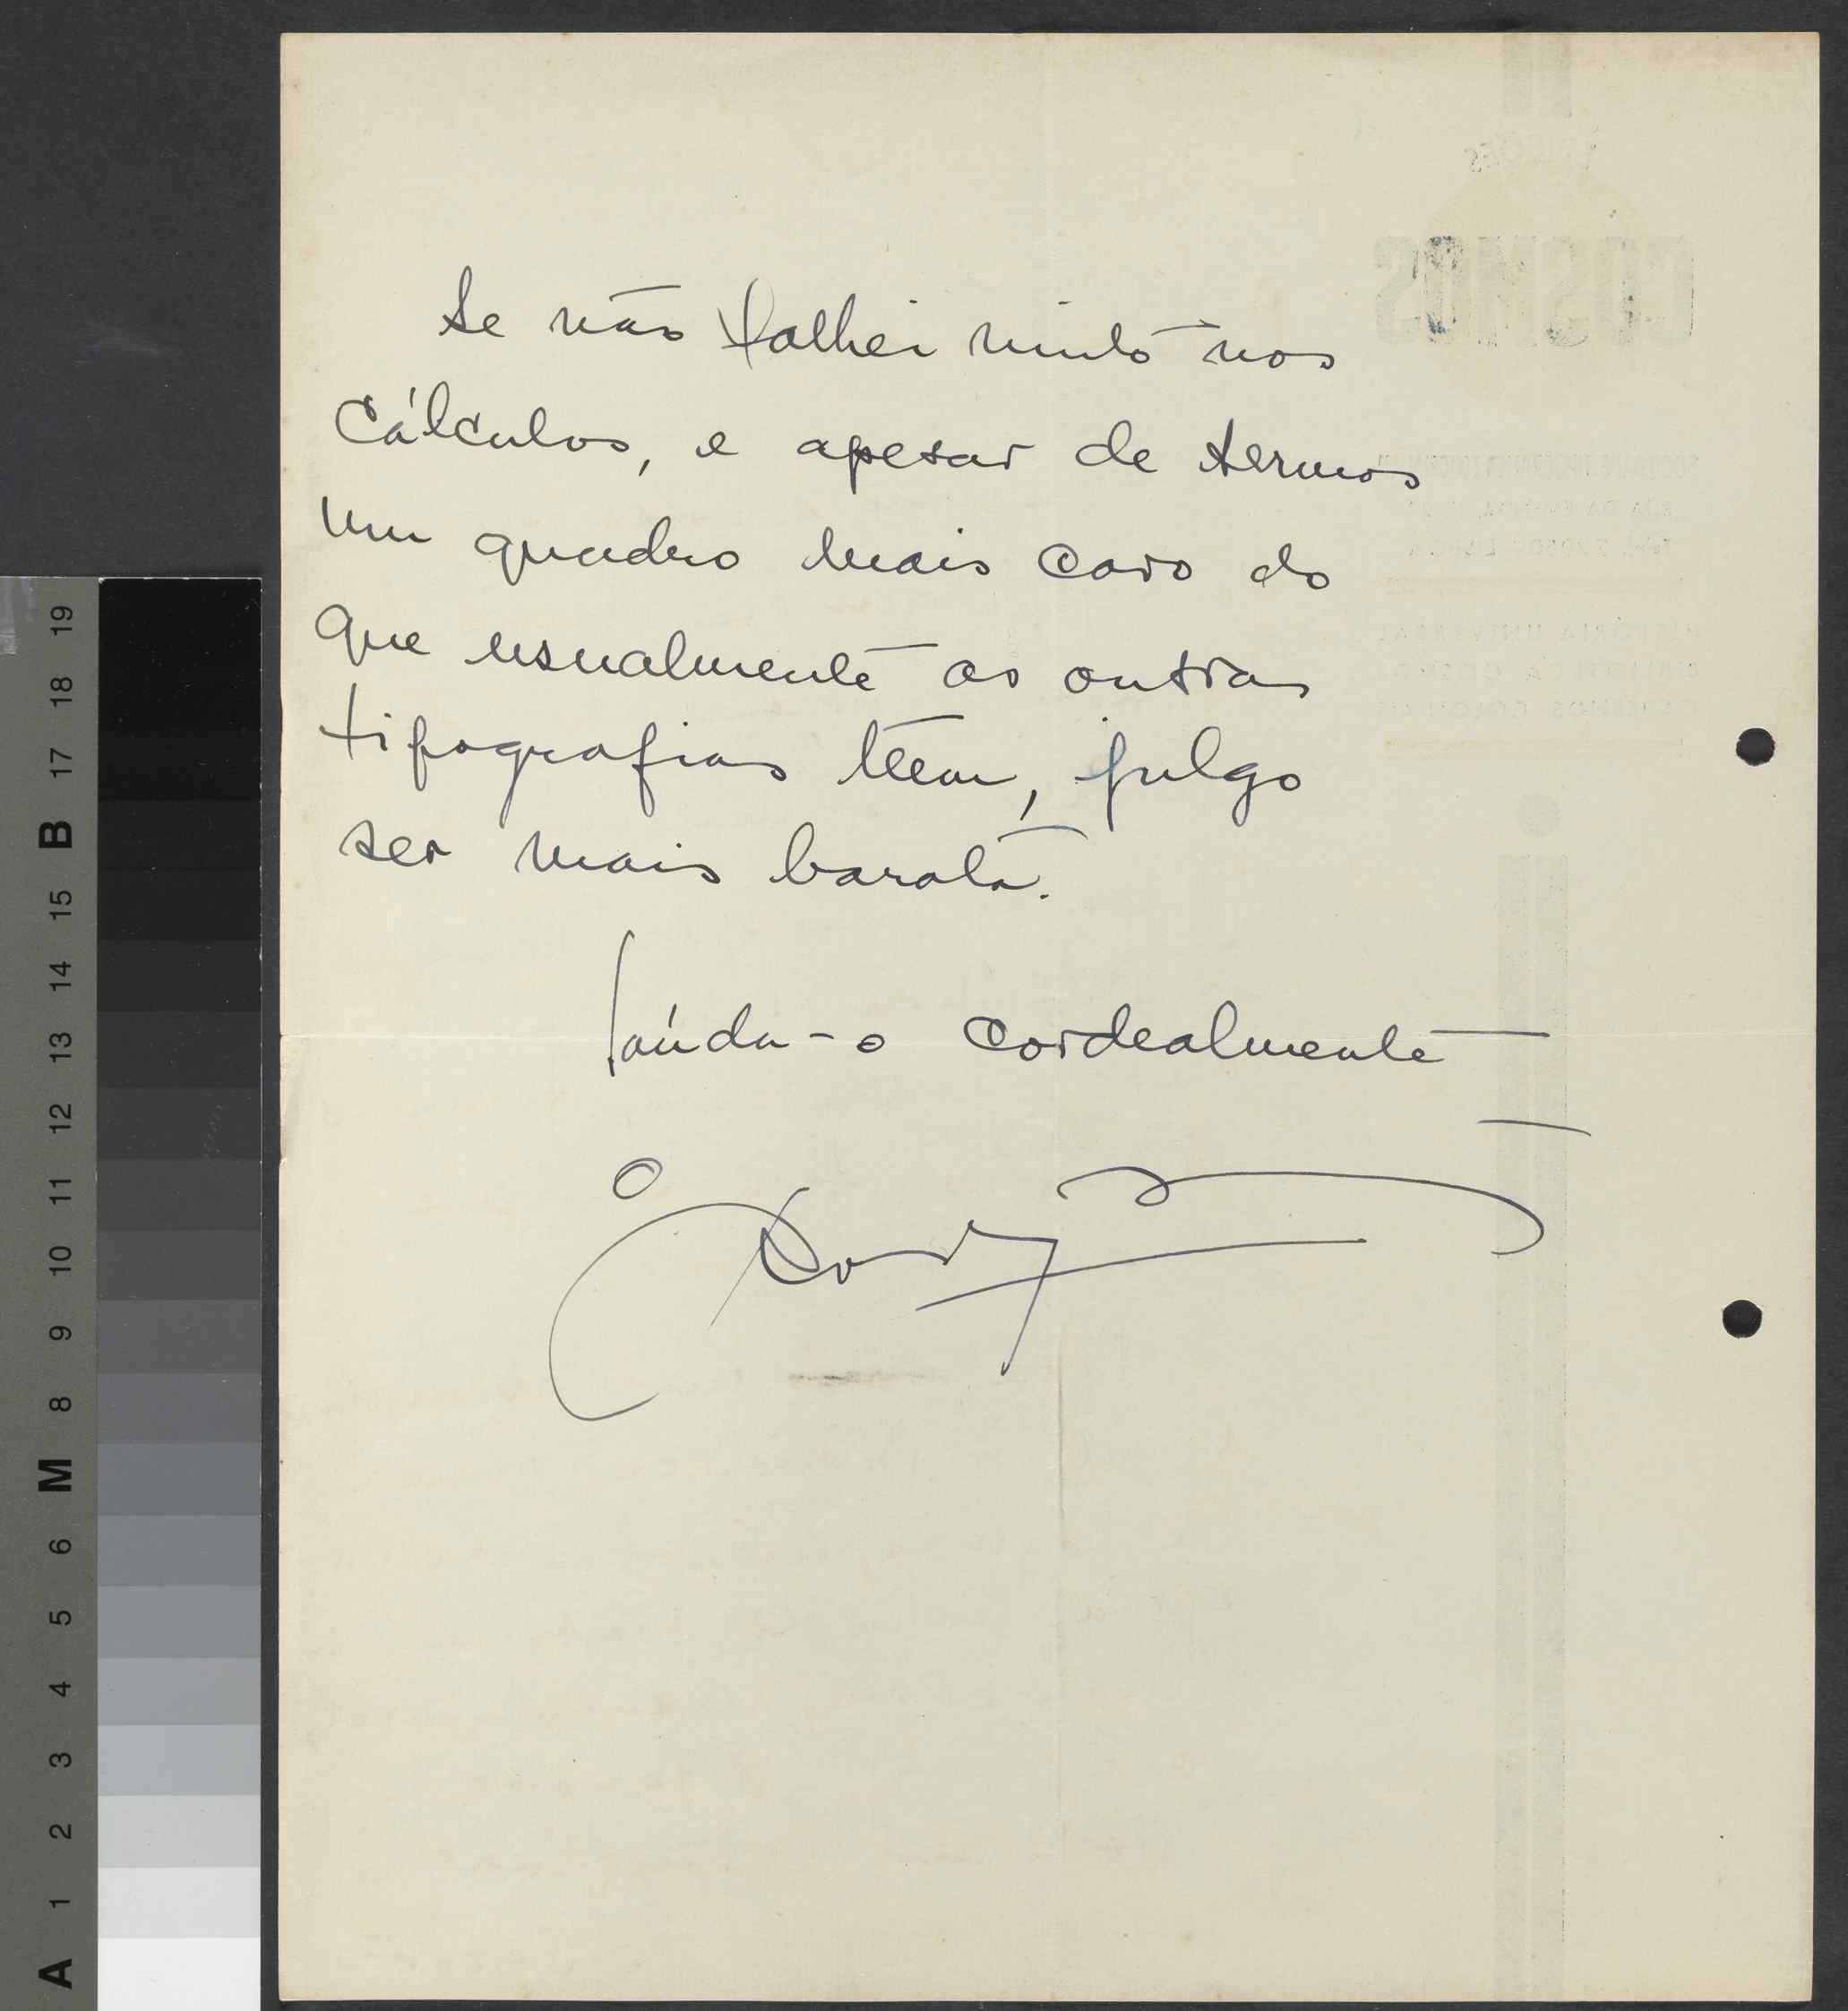 Se não falhei muito nos
cálculos, e apesar de termos
um quadro mais caro do
que usualmente as outras
tipografias teem, julgo
ser mais barata.
Saúda-o cordealmente
COSMOS
19
18
17
B
15
14
13
12
11
10
9
8
M
6
5
4
3
2
1
A